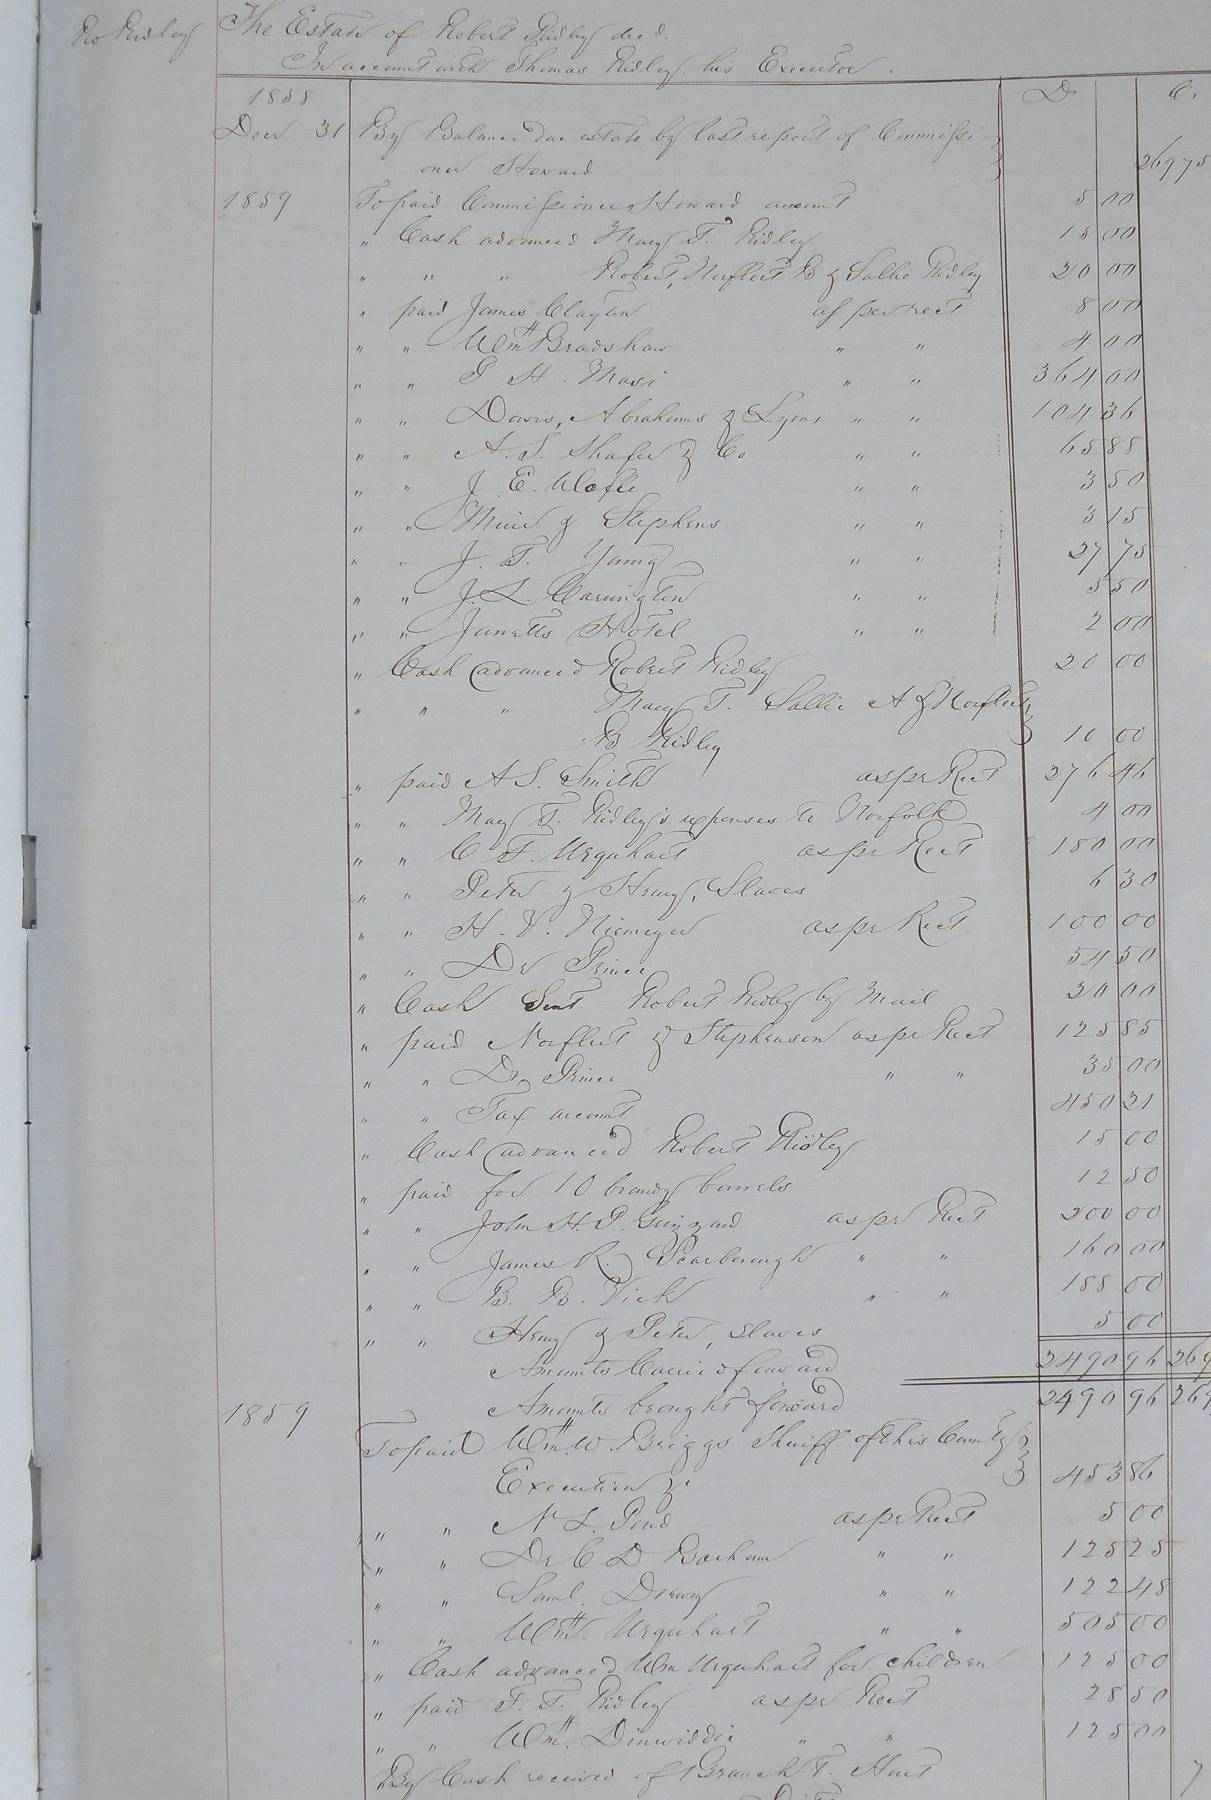 Ro Ridley
The Estate of Robert Ridley decd.
In account with Thomas Ridley his Executor.
1858 Dr Cr
Decr 31 By Balance due estate by last report of Commissi
oner Howard 26975
1859 To paid Commissioner Howard account 5 00
" Cash advanced Mary T. Ridley 15 00
" " " Robert, Norfleet B & Sallie Ridley 20 00
" paid James Clayton as per rect 8 00
" " Wm H Bradshaw " " 4 00
" " P H. Masi " " 364 00
" " Davis, Abrahams & Lyons " " 104 36
" " A. S. Shafer & Co " " 65 88
" " J. E. Wolfe " " 3 50
" " Muir & Stephens " " 3 15
" " J. T. Young " " 27 75
" " J. L. Carrington " " 5 50
" " Jarratts Hotel " " 2 00
" Cash advanced Robert Ridley 20 00
" " " Mary T. Sallie A & Norfleet
B Ridley 10 00
" paid A S. Smith as pr Rect 276 46
" " Mary T. Ridley's expenses to Norfolk 4 00
" " C F. Urquhart as pr Rect 180 00
" " Peter & Henry, Slaves 6 30
" " H. V. Niemeyer as pr Rect 100 00
" " Dr Prince 54 50
" Cash Sent Robert Ridley by Mail 20 00
" paid Norfleet & Stephenson as pr Rect 125 85
" " Dr Prince " " 35 00
" " Tax account 450 21
" Cash advanced Robert Ridley 15 00
" paid for 10 brandy barrels 12 50
" " John H. P. Grizzard as pr Rect 200 00
" " James R. Scarborough " " 160 00
" " B. B. Vick " " 188 00
" " Henry & Peter, slaves 5 00
Amounts Carried forward 2490 96 269
1859 Amounts brought forward 2490 96 269
To paid Wm W. Briggs Sheriff of this County
Execution &c 453 86
" " N L. Pond as pr Rect 5 00
" " Dr C D Barham " " 125 25
" " Saml. Drewry " " 122 48
" " Wm H. Urquhart " " 505 00
" Cash advanced Wm Urquhart for children 125 00
" paid F. T. Ridley as pr Rect 28 50
" " Wm H. Dinwiddie " " 125 00
By Cash received of Branch T. Hurt 7